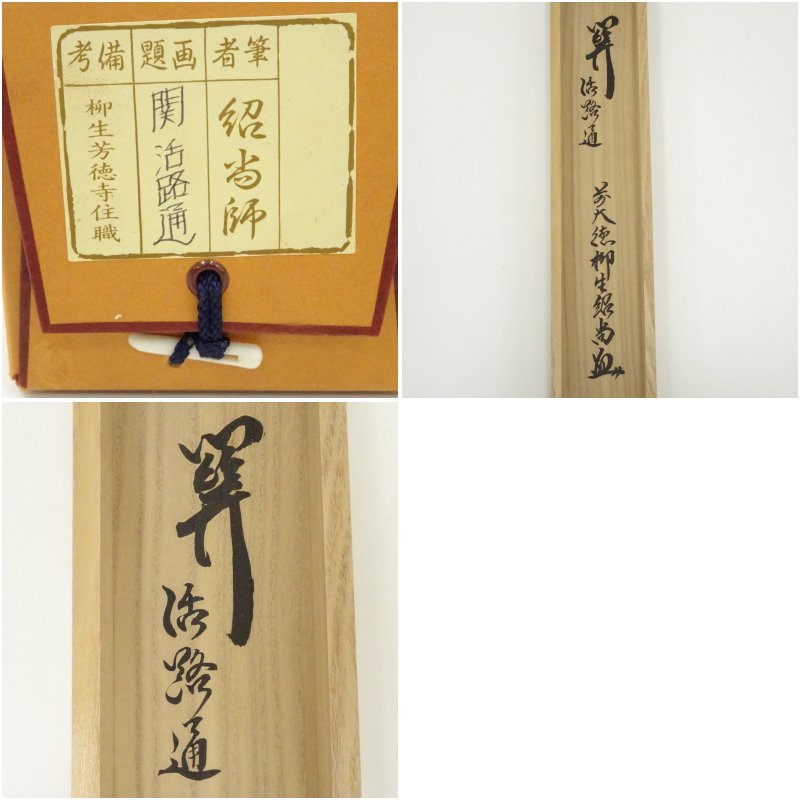 筆者
紹尚師
画題
関 活路通
備考
柳生芳徳寺住職
関
活路通
前大徳柳生紹尚
関
活路通